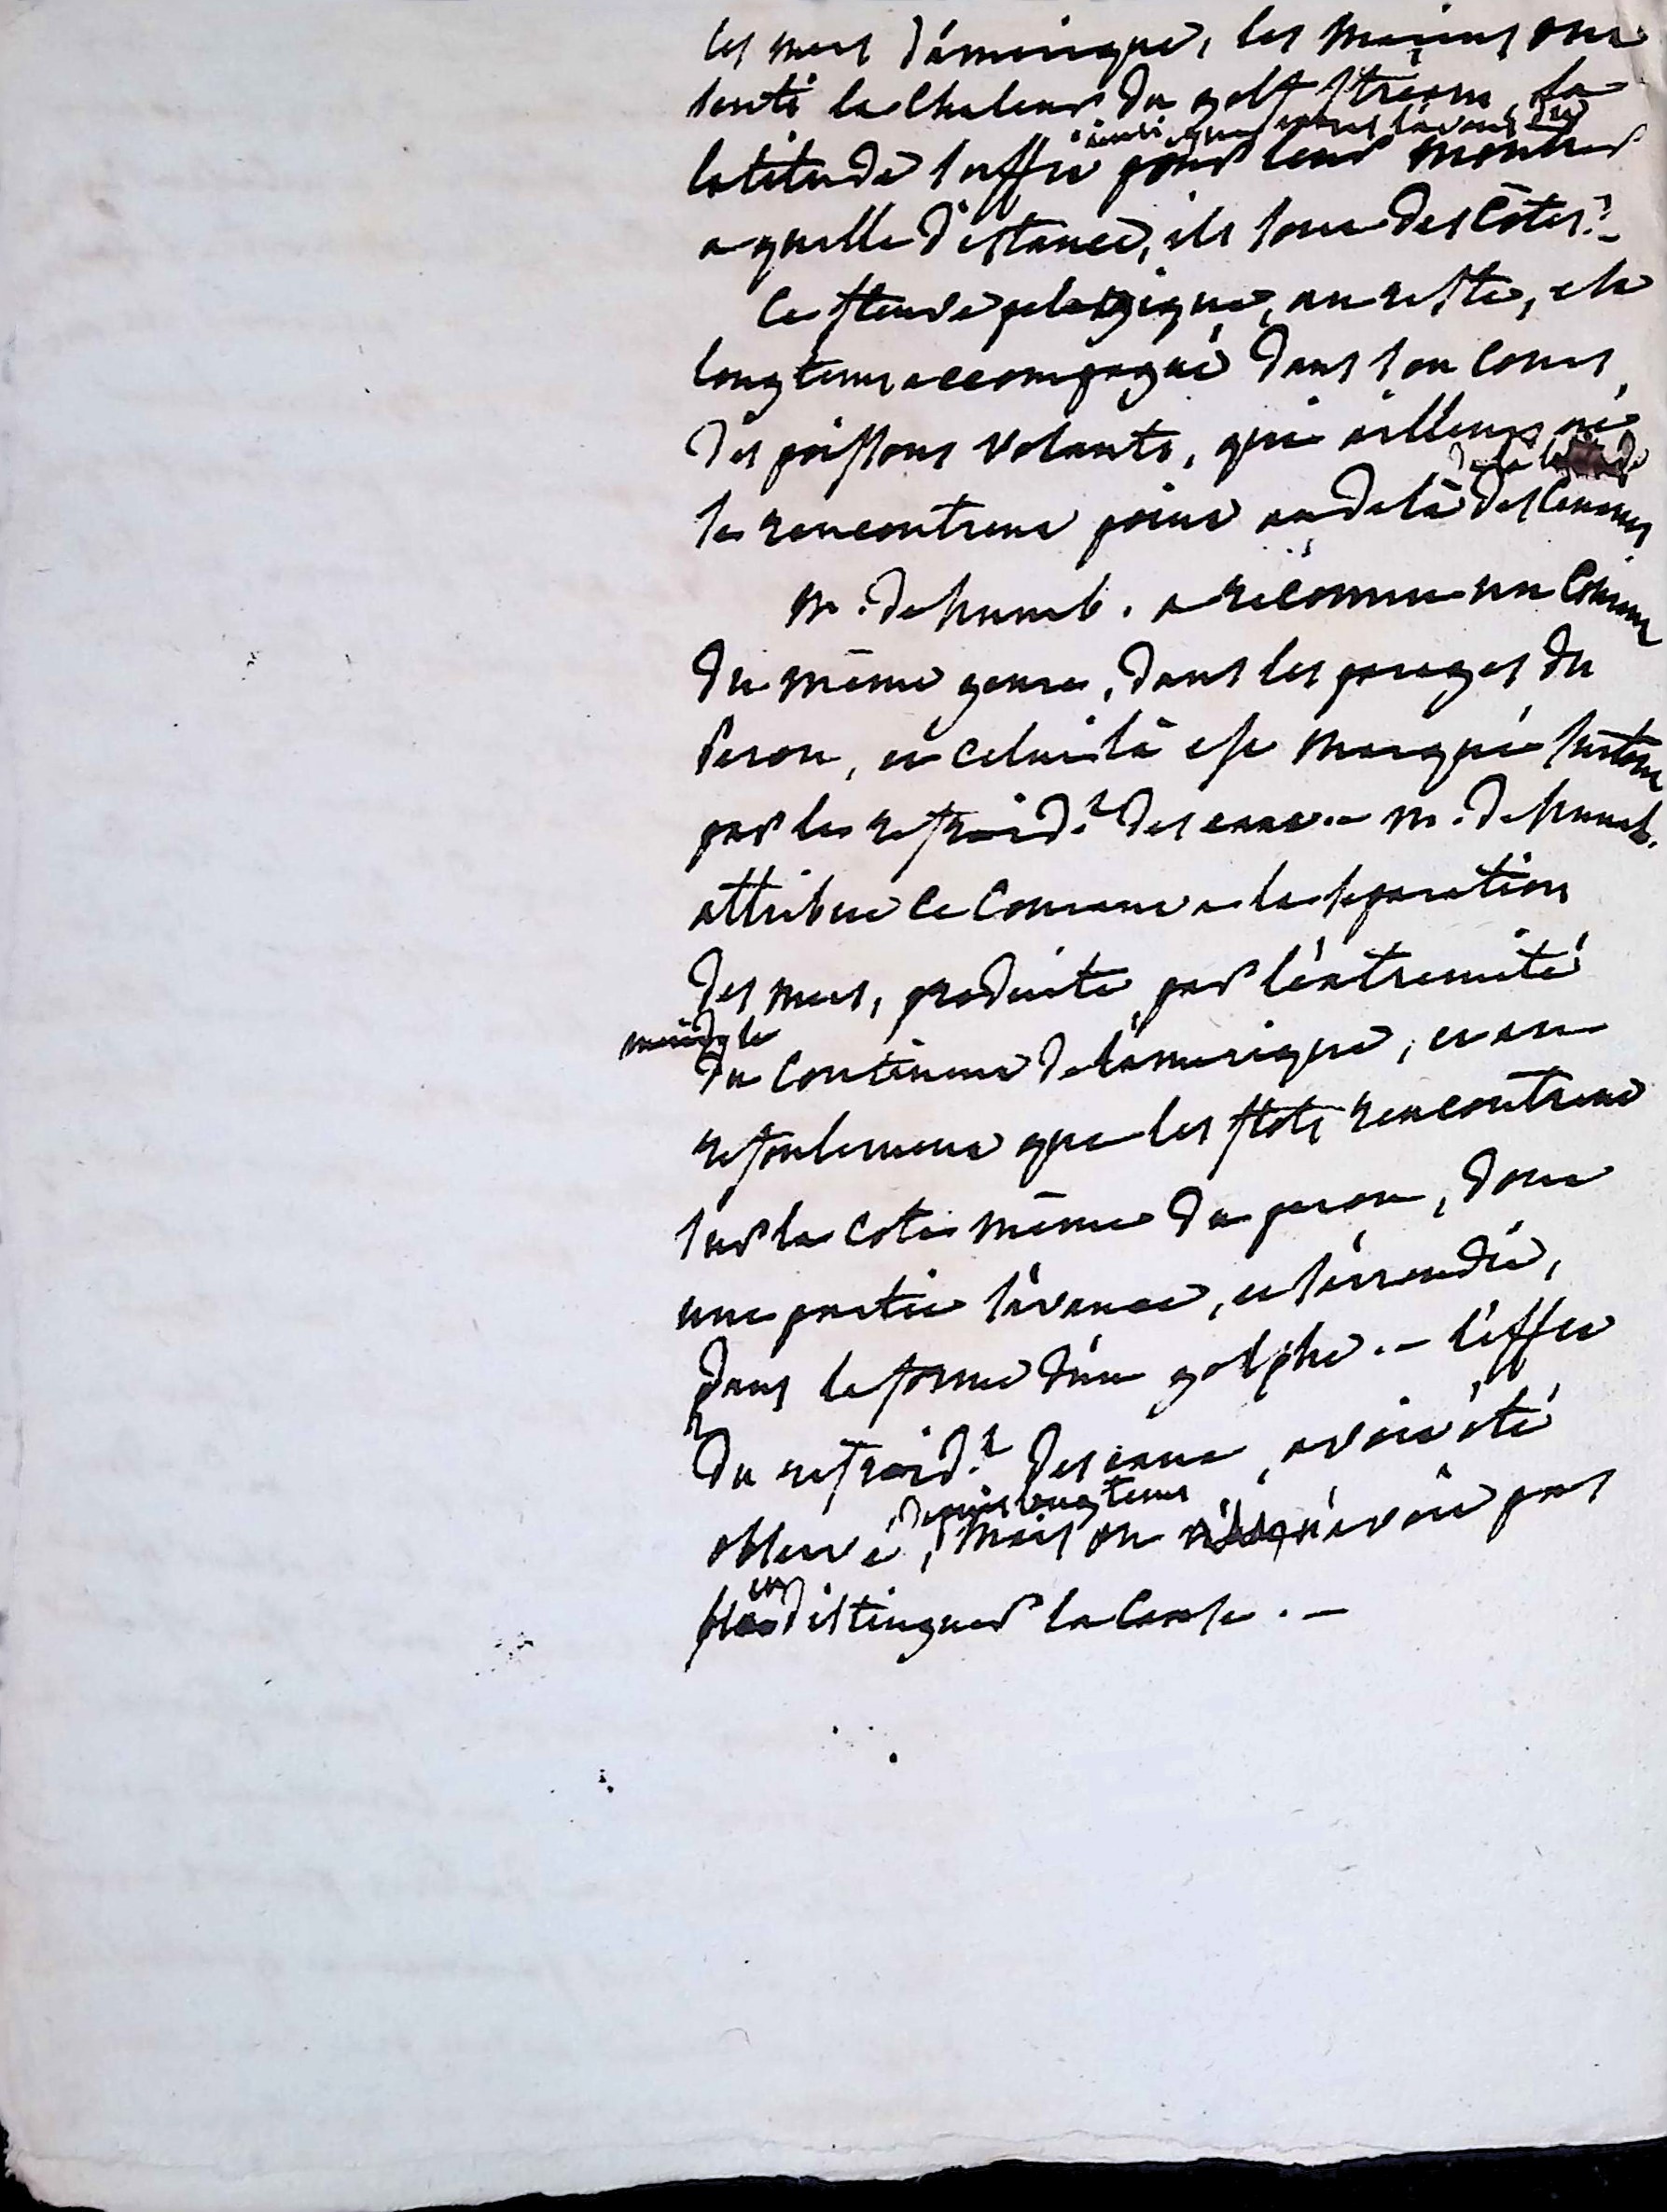 les mers d'amerique, les marins ont
senti la chaleur du golf stream, la
ainsi que nous l'avons dit
latitude suffit pour leur montrer
a quelle distance, ils sont des côtes. -
Ce fleuve pelagique, au reste, est
longtems accompagné dans son cours,
des poissons volants, qui ailleurs ne
de la latitude
se rencontrent point au dela des Canaries
m. de humb. a reconnu un Courant
du même genre, dans les parages du
Perou, et celui là est marqué surtout
par le refroid.t des eaux. - m. de humb.
attribue ce Courant a la separation
des mers, produite, par l'extremité
merid.le
du Continent de l'amerique, et au
refoulement que les flots rencontrent
sur la cote même du perou, dont
une partie s'avance, et s'arrondit,
dans la forme d'un golphe. - l'effet
du refroid.t des eaux, avoit été
depuis longtems
observé, mais on n'avoit pas
en
distinguer la Cause. -